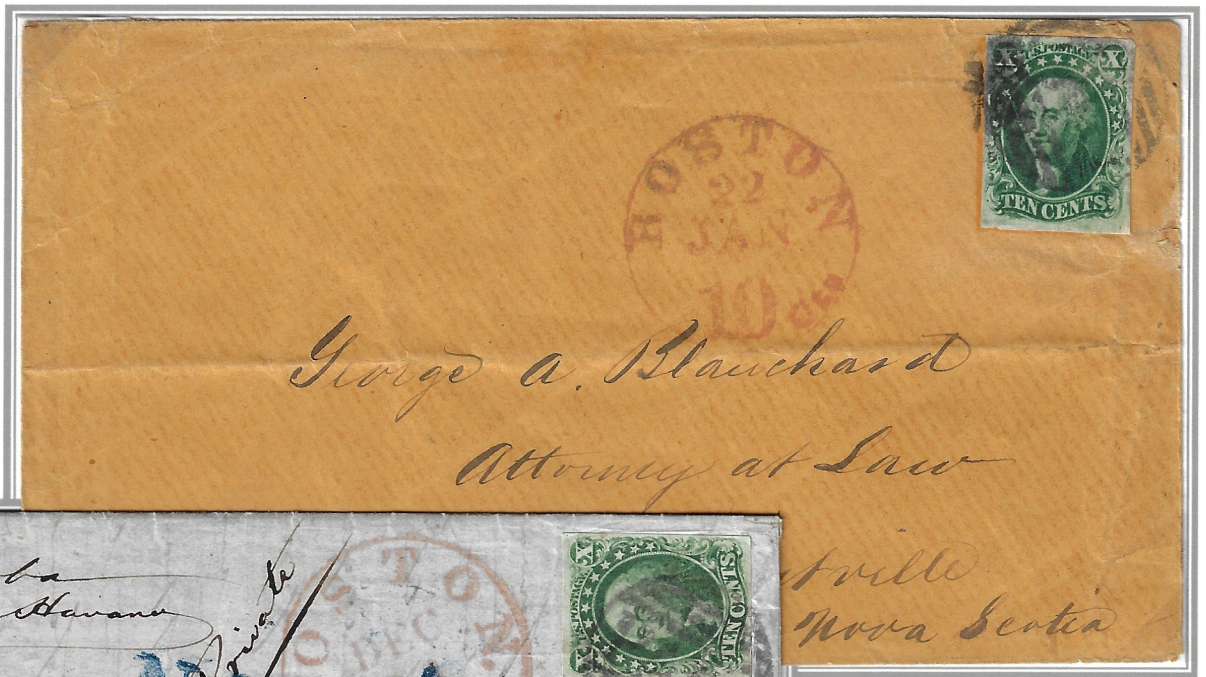 X U.S. POSTAGE X
TEN CENTS.
BOSTON
22
JAN
10 Cts
George A. Blanchard
Attorney at Law
Nova Scotia
Havana
Private
OSTON
DEC
X U.S. POSTAGE X
TEN CENTS